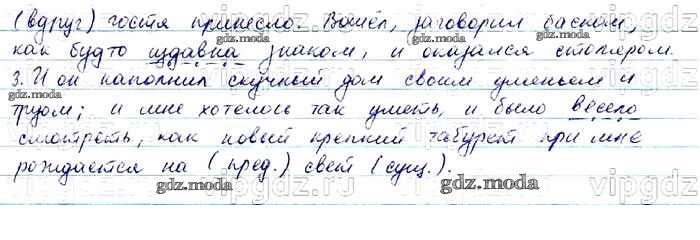 (вдруг) гостя принесло. Вошёл, заговорил баском,
как будто издавна знаком, и оказался столяром.
3. И он наполнил скучный дом своим уменьем и
трудом; и мне хотелось так уметь, и было весело
смотреть, как новый крепкий табурет при мне
рождается на (пред.) свет (сущ.).
gdz.moda
gdz.moda
gdz.moda
gdz.moda
gdz.moda
gdz.moda
gdz.moda
vipgdz
vipgdz